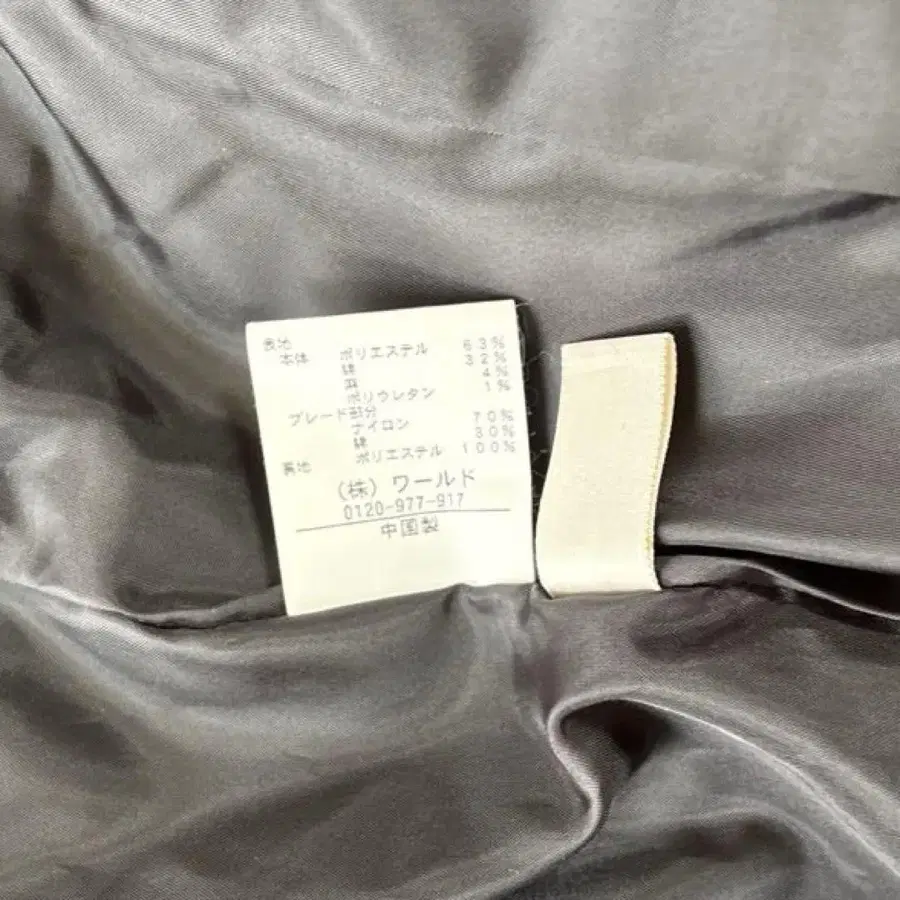 表地
本体 ポリエステル 63%
綿 32%
麻 4%
ポリウレタン 1%
ブレード部分
ナイロン 70%
綿 30%
裏地 ポリエステル 100%
(株) ワールド
0120-977-917
中国製